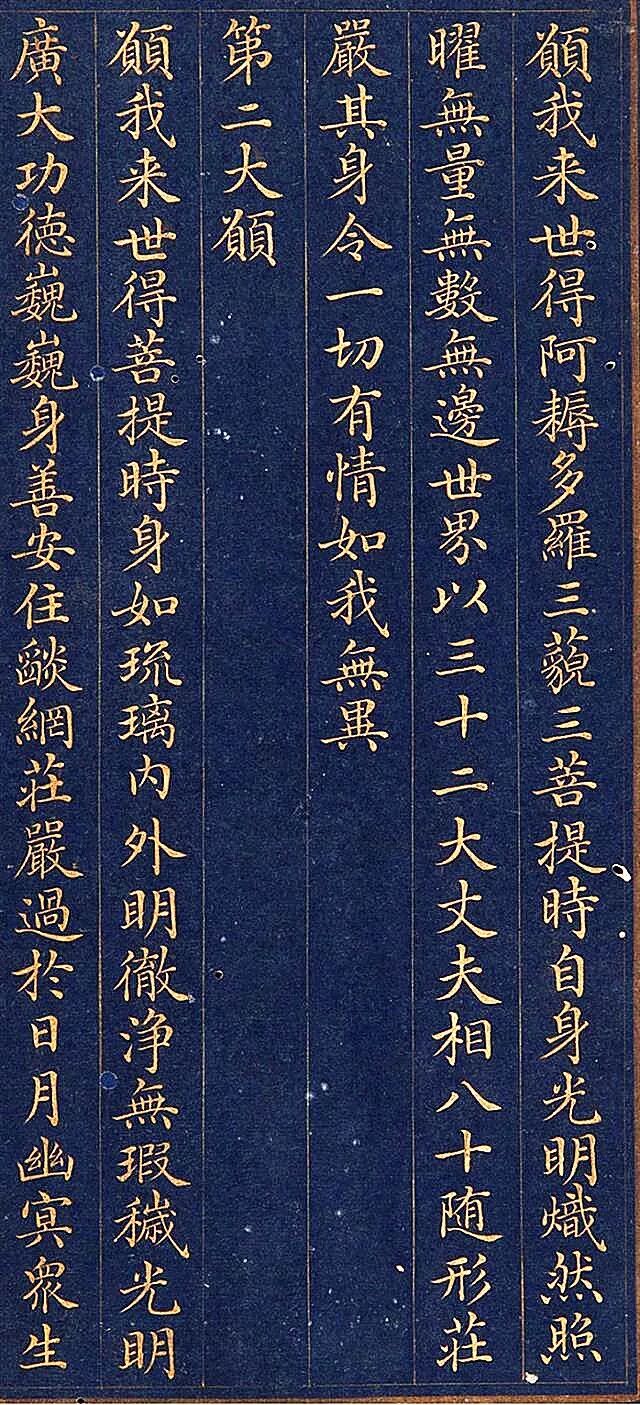 願我来世得阿耨多羅三藐三菩提時自身光明熾然照
曜無量無數無邊世界以三十二大丈夫相八十随形莊
嚴其身令一切有情如我無異
第二大願
願我来世得菩提時身如琉璃内外明徹淨無瑕穢光明
廣大功徳巍巍身善安住燄網莊嚴過於日月幽冥衆生